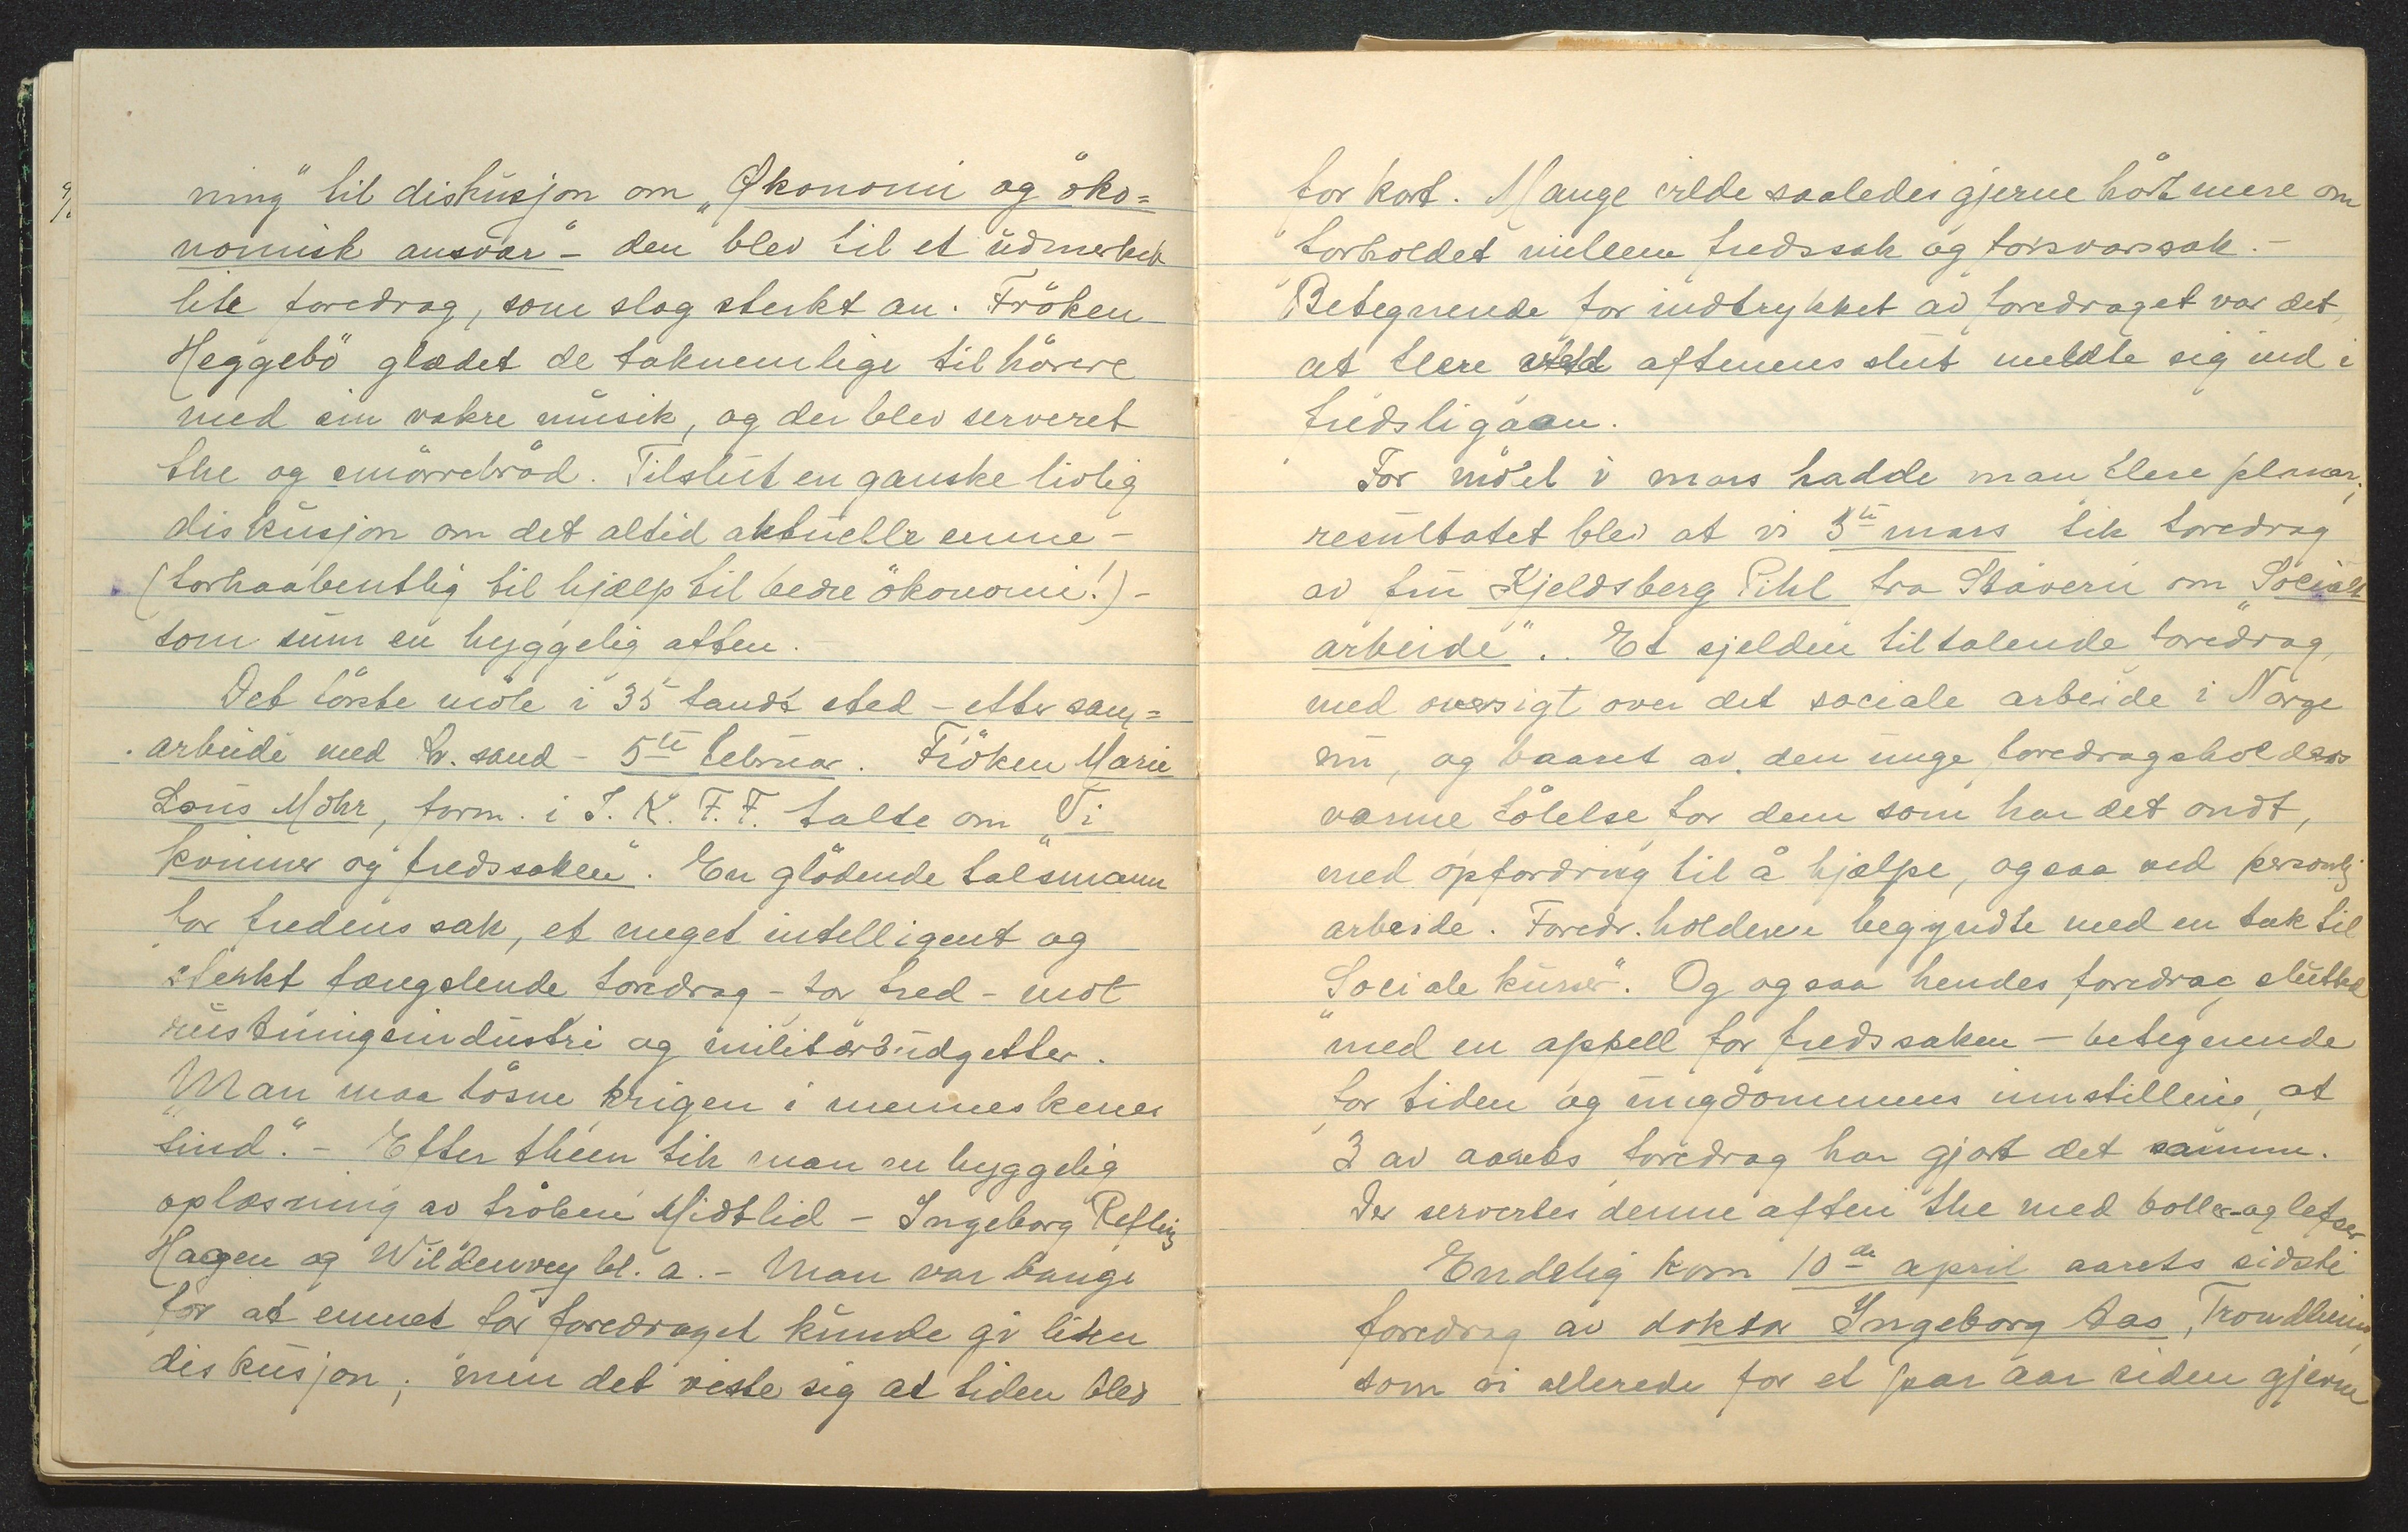 ning" til diskusjon om „Økonomi og öko=
nomisk ansvar" - den blev til et udmerket
lite foredrag, som slog sterkt an. Fröken
Heggebö glædet de taknemlige tilhörere
med sin vakre musik, og der blev serveret
the og smörrebröd. Tilslut en ganske livlig
diskusjon om det altid aktuelle emne -
(forhaabentlig til hjælp til bedre ökonomi!) -
som sum en hyggelig aften.
Det förste möte i 35 fandt sted - efter sam=
arbeide med Kr. sand - 5te februar. Fröken Marie
Lous Mohr, form. i I. K. F. F. talte om „Vi
kvinner og fredssaken". En glödende talsmann
for fredens sak, et meget intelligent og
sterkt fængslende foredrag - for fred - mot
rustningsindustri og militærbudgetter.
„Man maa lösne krigen i menneskenes
sind". - Efter theen fik man en hyggelig
oplæsning av fröken Midtlid - Ingeborg Refling
Hagen og Wildenvey bl. a. - Man var bange
for at emnet for foredraget kunde gi liten
diskusjon; men det viste sig at tiden blev
for kort. Mange vilde saaledes gjerne hört mere om
forholdet mellem fredssak og forsvarssak. -
Betegnende for indtrykket av foredraget var det,
at flere ved aftenens slut meldte sig ind i
fredsligaen.
For mötet i mars hadde man flere planer;
resultatet blev at vi 5te mars fik foredrag
av fru Kjeldsberg Pihl fra Stavern om „Socialt
arbeide". Et sjelden tiltalende foredrag,
med oversigt over det sociale arbeide i Norge
nu, og baaret av den unge foredragsholders
varme fölelse for dem som har det ondt,
med opfordring til å hjælpe, ogsaa ved personlig
arbeide. Foredr. holderen begyndte med en tak til
„Sociale kurser". Og ogsaa hendes foredrag sluttet
med en appell for fredssaken - betegnende
for tiden og ungdommens innstilling, at
3 av aarets foredrag har gjort det samme.
Der servertes denne aften the med boller og lefser
Endelig kom 10de april aarets sidste
foredrag av doktor Ingeborg Aas, Trondheim,
som vi allerede for et par aar siden gjerne